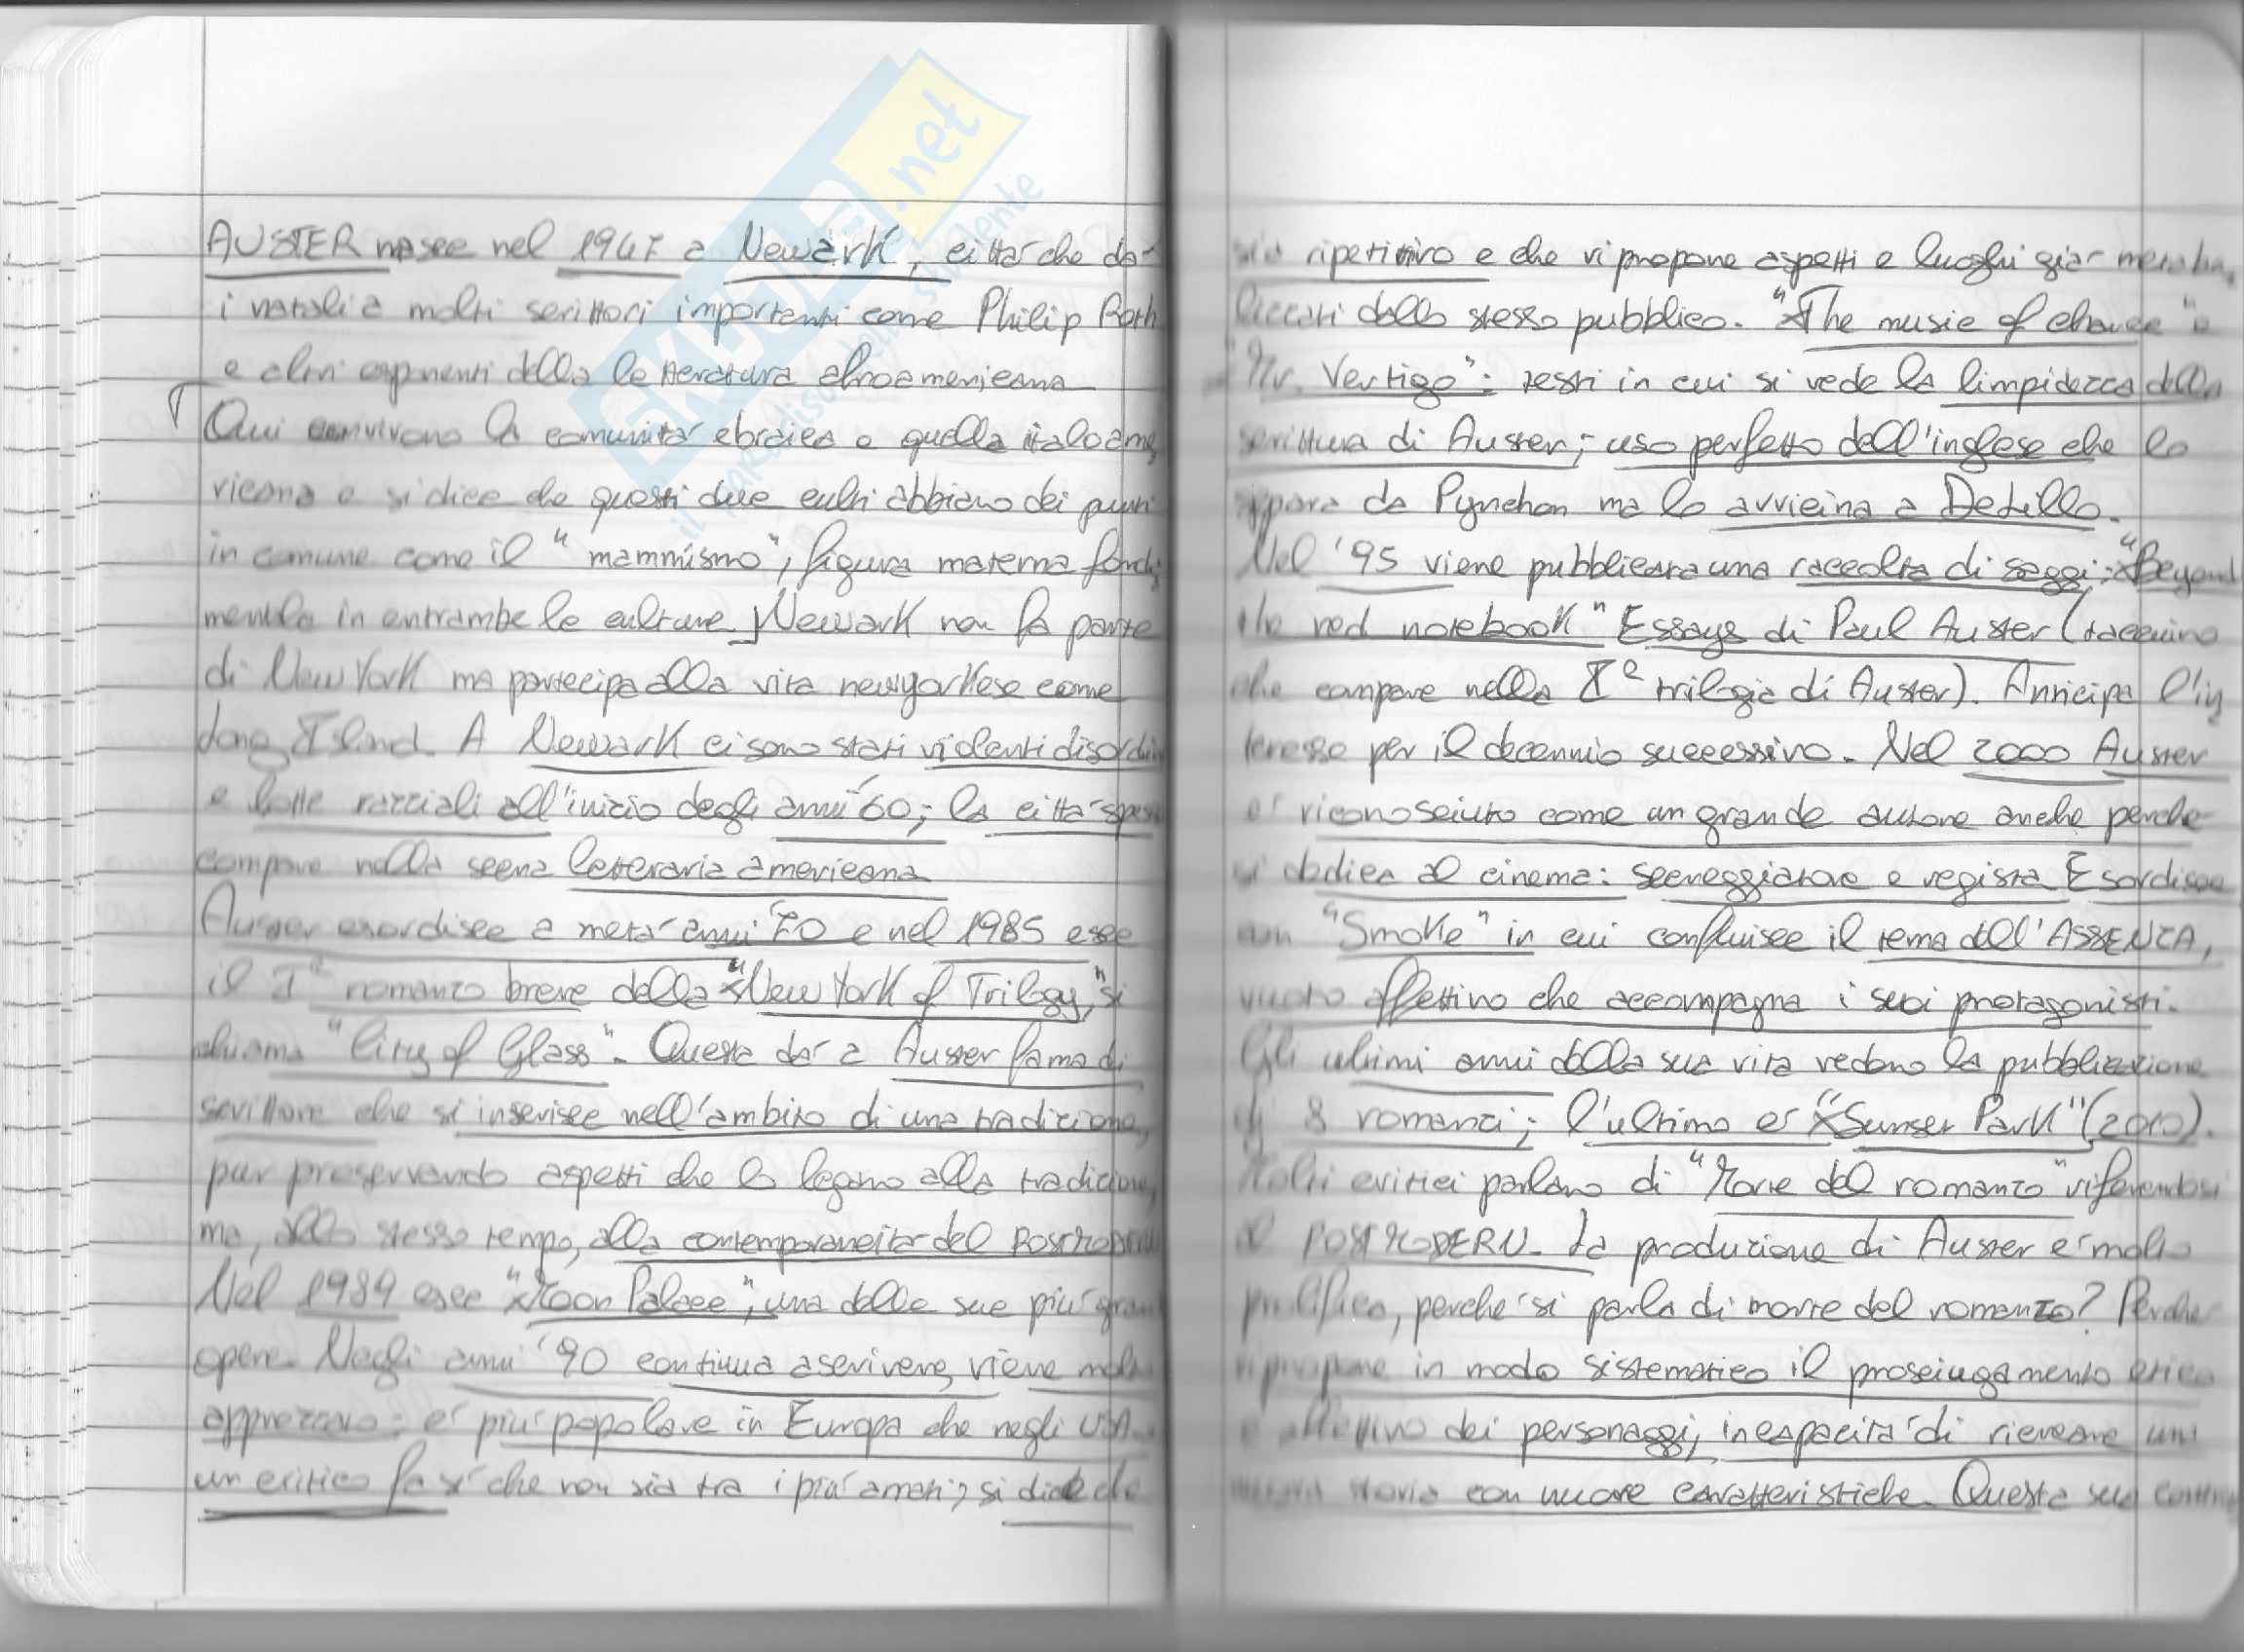 AUSTER nasce nel 1947 a Newark, citta' che da'
i natali a molti scrittori importanti come Philip Roth
e altri esponenti della letteratura afroamericana
Qui convivono la comunita' ebraica e quella italoame
ricana e si dice che questi due culti abbiano dei punti
in comune come il "mammismo", figura materna fonda
mentale in entrambe le culture. Newark non fa parte
di New York ma partecipa alla vita newyorkese come
Long Island. A Newark ci sono stati violenti disordini
e lotte razziali all'inizio degli anni '60; la citta' spesso
compare nella scena letteraria americana
Auster esordisce a meta' anni '70 e nel 1985 esce
il I° romanzo breve della "New York of Trilogy," si
chiama "City of Glass". Questa da' a Auster fama di
scrittore che si inserisce nell'ambito di una tradizione,
pur preservando aspetti che lo legano alla tradizione,
ma, allo stesso tempo, alla contemporaneita' del POSTMODERN
Nel 1989 esce "Moon Palace", una delle sue piu' grandi
opere. Negli anni '90 continua a scrivere, viene molto
apprezzato: e' piu' popolare in Europa che negli USA.
un critico fa si' che non sia tra i piu' amati; si dice che
sia ripetitivo e che vi propone aspetti e luoghi gia' metabo
lizzati dallo stesso pubblico. "The music of chance" e
"Mr. Vertigo": testi in cui si vede la limpidezza della
scrittura di Auster; uso perfetto dell'inglese che lo
separa da Pynchon ma lo avvicina a DeLillo.
Nel '95 viene pubblicata una raccolta di saggi: "Beyond
the red notebook" Essays di Paul Auster (taccuino
che compare nella I° trilogia di Auster). Anticipa l'in
teresse per il decennio successivo. Nel 2000 Auster
e' riconosciuto come un grande autore anche perche'
si dedica al cinema: sceneggiatore e regista Esordisce
con "Smoke" in cui confluisce il tema dell'ASSENZA,
vuoto affettivo che accompagna i suoi protagonisti.
Gli ultimi anni della sua vita vedono la pubblicazione
di 8 romanzi; l'ultimo e' "Sunset Park" (2010).
Molti critici parlano di "Morte del romanzo" riferendosi
al POSTMODERN. La produzione di Auster e' molto
prolifica, perche' si parla di morte del romanzo? Perche'
ripropone in modo sistematico il prosciugamento etico
e affettivo dei personaggi, incapacita' di ricreare una
nuova storia con nuove caratteristiche. Questa sua
SKUOLA.net